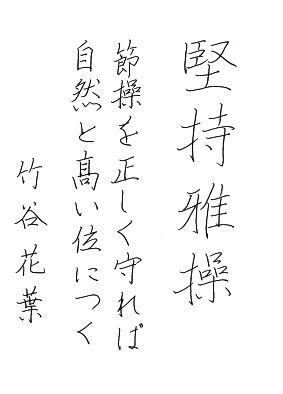 堅持雅操
節操を正しく守れば
自然と高い位につく
竹谷花葉